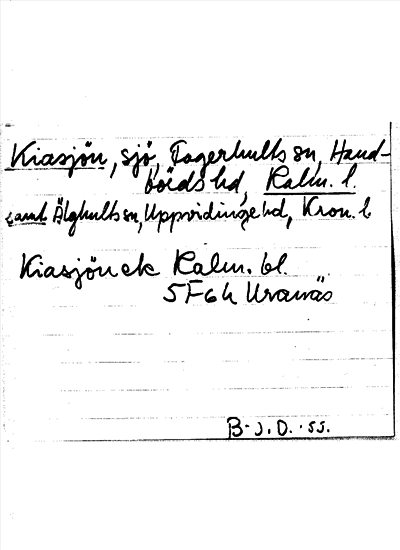 Kiasjön, sjö, Fagerhults sn, Hand-
börds hd, Kalm. l.
samt Älghults sn, Uppvidinge hd, Kron. l.
Kiasjön ek Kalm. bl.
5F6h Uranäs
B-J.D. -55.